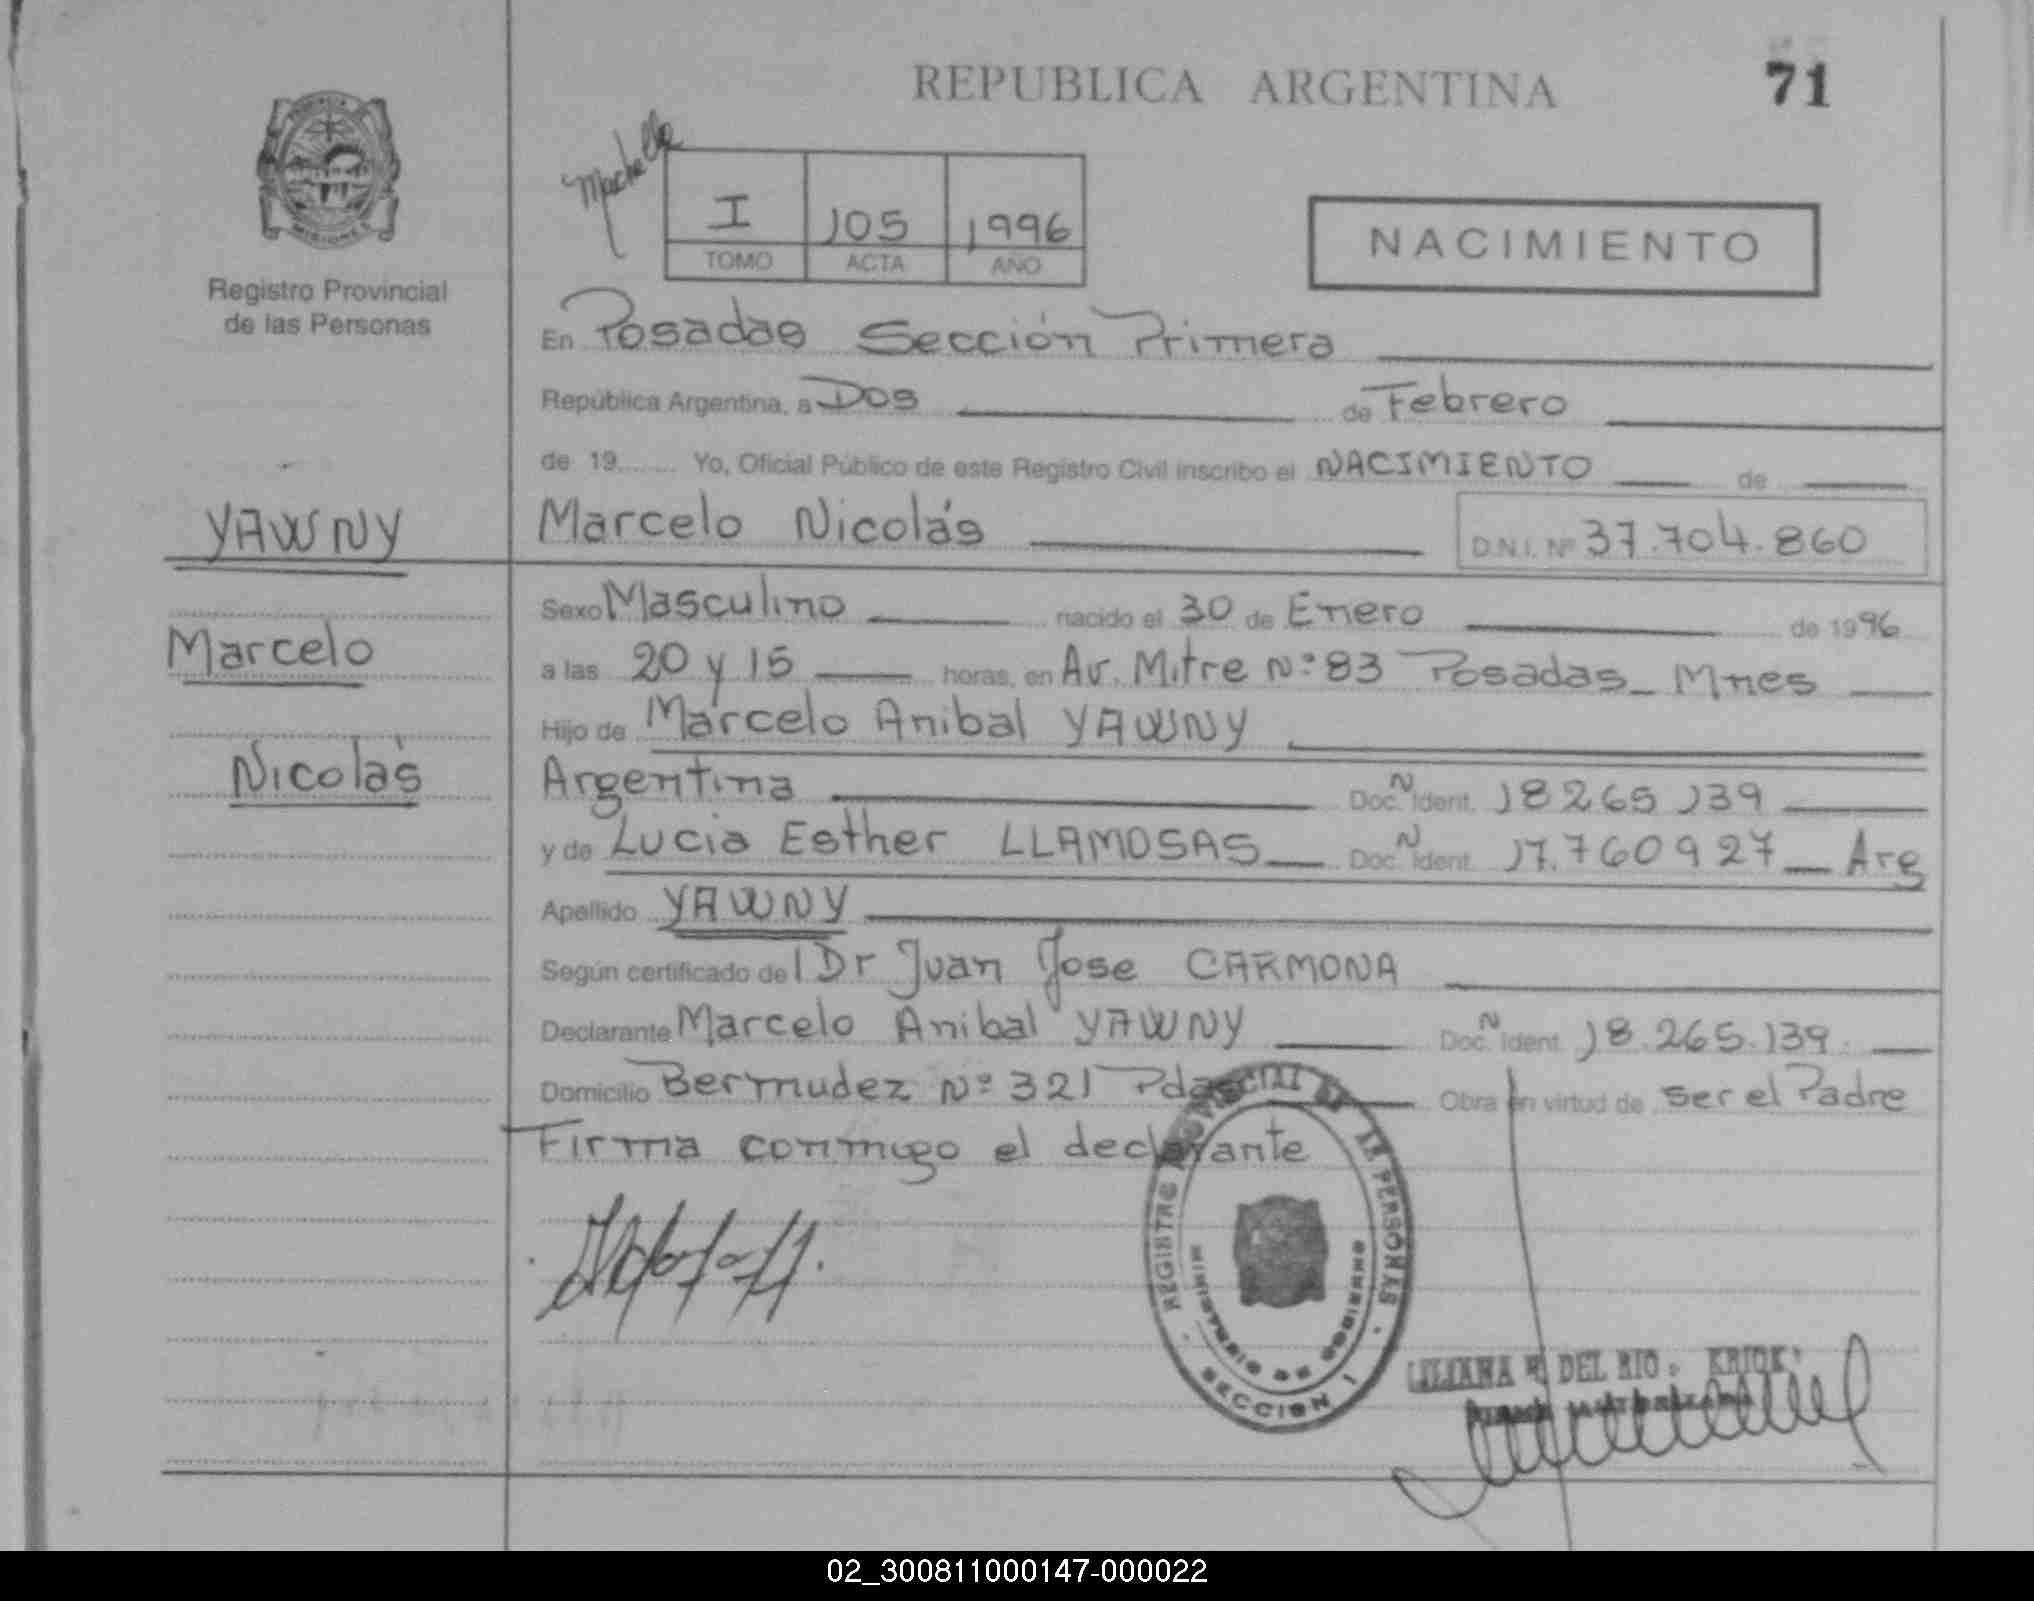 REPUBLICA ARGENTINA
71
MISIONES
Registro Provincial
de las Personas
I 105 1996
TOMO ACTA AÑO
NACIMIENTO
En Posadas Sección Primera
República Argentina, a Dos de Febrero
de 19........ Yo, Oficial Público de este Registro Civil inscribo el NACIMIENTO de
YAWNY
Marcelo Nicolás D.N.I. Nº 37.704.860
Sexo Masculino nacido el 30 de Enero de 1996
Marcelo
a las 20 y 15 horas, en Av. Mitre Nº 83 Posadas_ Mnes
Hijo de Marcelo Anibal YAWNY
Nicolás
Argentina Doc. N Ident. 18265139
y de Lucia Esther LLAMOSAS Doc. N Ident. 17.760927 Arg
Apellido YAWNY
Según certificado del Dr Juan Jose CARMONA
Declarante Marcelo Anibal YAWNY Doc. N Ident. 18.265.139
Domicilio Bermudez Nº 321 Pdas Obra en virtud de ser el Padre
Firma conmigo el declarante
REGISTRO PROVINCIAL DE LAS PERSONAS
MINISTERIO DE GOBIERNO
SECCION 1
LILIANA DEL RIO
02_300811000147-000022